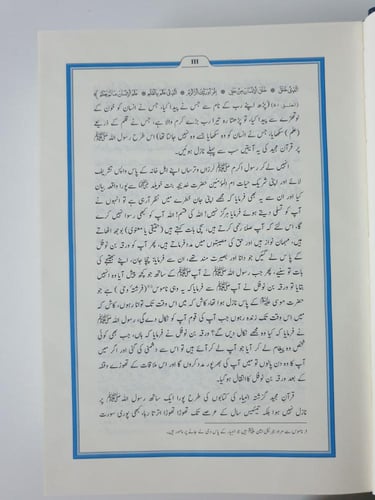 111
الَّذِیْ خَلَقَ ۞ خَلَقَ الْاِنْسَانَ مِنْ عَلَقٍ ۞ اِقْرَاْ وَرَبُّكَ الْاَكْرَمُ ۞ الَّذِیْ عَلَّمَ بِالْقَلَمِ ۞ عَلَّمَ الْاِنْسَانَ مَا لَمْ یَعْلَمْ ﴾
پڑھ اپنے رب کے نام سے جس نے پیدا کیا، جس نے انسان کو خون کے
لوتھڑے سے پیدا کیا، تو پڑھتا رہ تیرا رب بڑے کرم والا ہے، جس نے قلم کے ذریعے
(علم) سکھایا، جس نے انسان کو وہ سکھایا جسے وہ نہیں جانتا تھا) اس طرح رسول اللہ ﷺ
پر قرآن مجید کی یہ آیتیں سب سے پہلے نازل ہوئیں۔
انھیں لے کر رسول اکرم ﷺ لرزاں و ترساں اپنے اہل خانہ کے پاس واپس تشریف
لائے اور اپنی شریک حیات ام المؤمنین حضرت خدیجہ بنت خویلد سے پورا واقعہ بیان
کیا اور ان سے یہ بھی فرمایا مجھے اپنی جان خطرے میں نظر آرہی ہے تو انھوں نے
آپ کو تسلی دیتے ہوئے فرمایا ہرگز نہیں! اللہ کی قسم! اللہ آپ کو کبھی رسوا نہیں کرے
گا، اس لئے کہ آپ صلہ رحمی کرتے ہیں، سچی بات کہتے ہیں (حقیقی یا معنوی) بوجھ اٹھاتے
ہیں، مہمان نواز ہیں اور حق کی مصیبتوں میں مدد فرماتے ہیں، پھر آپ کو ورقہ بن نوفل
کے پاس لے گئیں جو دانا اور بصیرت مند تھے، ان سے فرمایا: چچا جان، اپنے بھتیجے کی
بات تو سنیے، پھر جب رسول اللہ ﷺ نے آپ کے ساتھ جو کچھ پیش آیا وہ انہیں
بتایا تو ورقہ بن نوفل نے آپ ﷺ سے فرمایا کہ یہ وہی ناموس (فرشتۂ وحی) ہے جو
حضرت موسیٰ کے پاس نازل ہوا تھا، کاش کہ میں اس وقت تک توانا رہوں، کاش کہ
میں اس وقت تک زندہ رہوں جب آپ کی قوم آپ کو نکال دے گی، رسول اللہ ﷺ
نے فرمایا کہ کیا وہ مجھے نکال دیں گے؟ ورقہ بن نوفل نے فرمایا کہ ہاں، جب بھی کوئی
شخص وہ پیغام لے کر آیا جو آپ لے کر آئے ہیں تو اس سے دشمنی کی گئی اور اگر میں
آپ کا وہ دن پالوں تو میں آپ کی بھرپور مدد کروں گا اور اس ملاقات کے تھوڑے وقفہ
کے بعد ورقہ بن نوفل کا انتقال ہو گیا۔
قرآن مجید گزشتہ انبیاء کی کتابوں کی طرح پورا ایک ساتھ رسول اللہ ﷺ پر
نازل نہیں ہوا بلکہ تیئیس سال کے عرصے تک تھوڑا تھوڑا اترتا رہا، کبھی پوری سورت